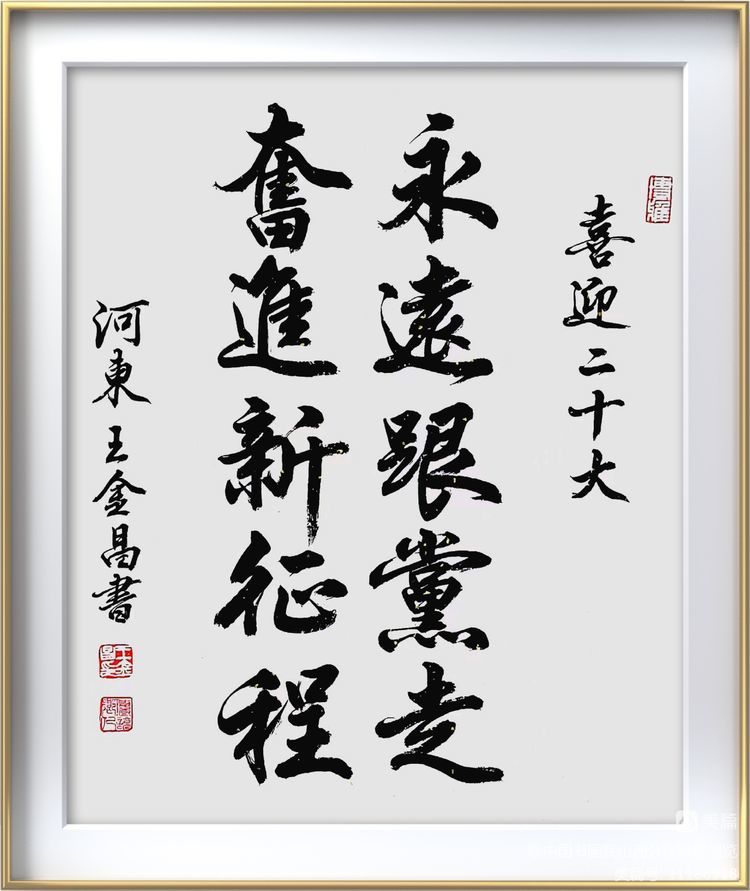 喜迎二十大
永遠跟黨走
奮進新征程
河東王金昌書
美篇